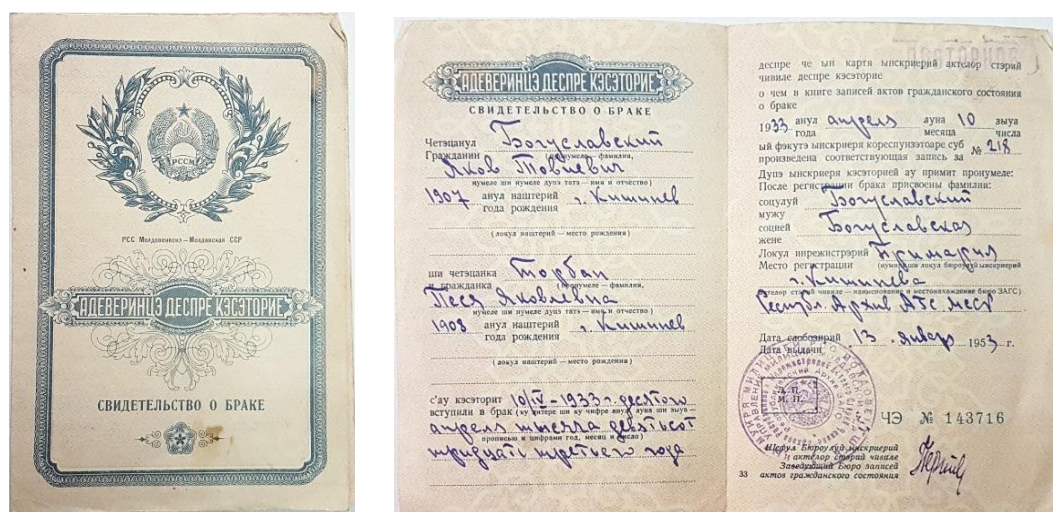 РССМ
РСС Молдовеняскэ — Молдавская ССР
АДЕВЕРИНЦЭ ДЕСПРЕ КЭСЭТОРИЕ
СВИДЕТЕЛЬСТВО О БРАКЕ
АДЕВЕРИНЦЭ ДЕСПРЕ КЭСЭТОРИЕ
СВИДЕТЕЛЬСТВО О БРАКЕ
Четэцанул Богуславский
Гражданин (пронумеле — фамилия,
Яков Товиевич
нумеле ши нумеле дупэ татэ — имя и отчество)
1907 анул наштерий г. Кишинев
года рождения
(локул наштерий — место рождения)
ши четэцанка Торбан
и гражданка (пронумеле — фамилия,
Песя Яковлевна
нумеле ши нумеле дупэ татэ — имя и отчество)
1908 анул наштерий г. Кишинев
года рождения
(локул наштерий — место рождения)
с'ау кэсэторит 10/IV – 1933 г. десятого
вступили в брак (ку литере ши ку чифре анул, луна ши зыуа —
апреля тысяча девятьсот
прописью и цифрами год, месяц и число)
тридцать третьего года
деспре че ын картя ынскриерий актелор стэрий
чивиле деспре кэсэторие
о чем в книге записей актов гражданского состояния
о браке
1933 анул апреля луна 10 зыуа
года месяца числа
ый фэкутэ ынскриеря кореспунзэтоаре суб № 218
произведена соответствующая запись за
Дупэ ынскриеря кэсэторией ау примит пронумеле:
После регистрации брака присвоены фамилии:
соцулуй Богуславский
мужу
социей Богуславская
жене
Локул инрежистрэрий Примария
Место регистрации (нумеля ши локул бюроулуй ынскриерий
г. Кишинева
актелор стэрий чивиле — наименование и местонахождение бюро ЗАГС)
Архив АГС МССР
Дата слобозирий 13 январ 1953 г.
Дата выдачи
Л. П.
М. П.
ЧЭ № 143716
Шефул Бюроулуй ынскриерий
актелор стэрий чивиле
Заведующий Бюро записей
33 актов гражданского состояния